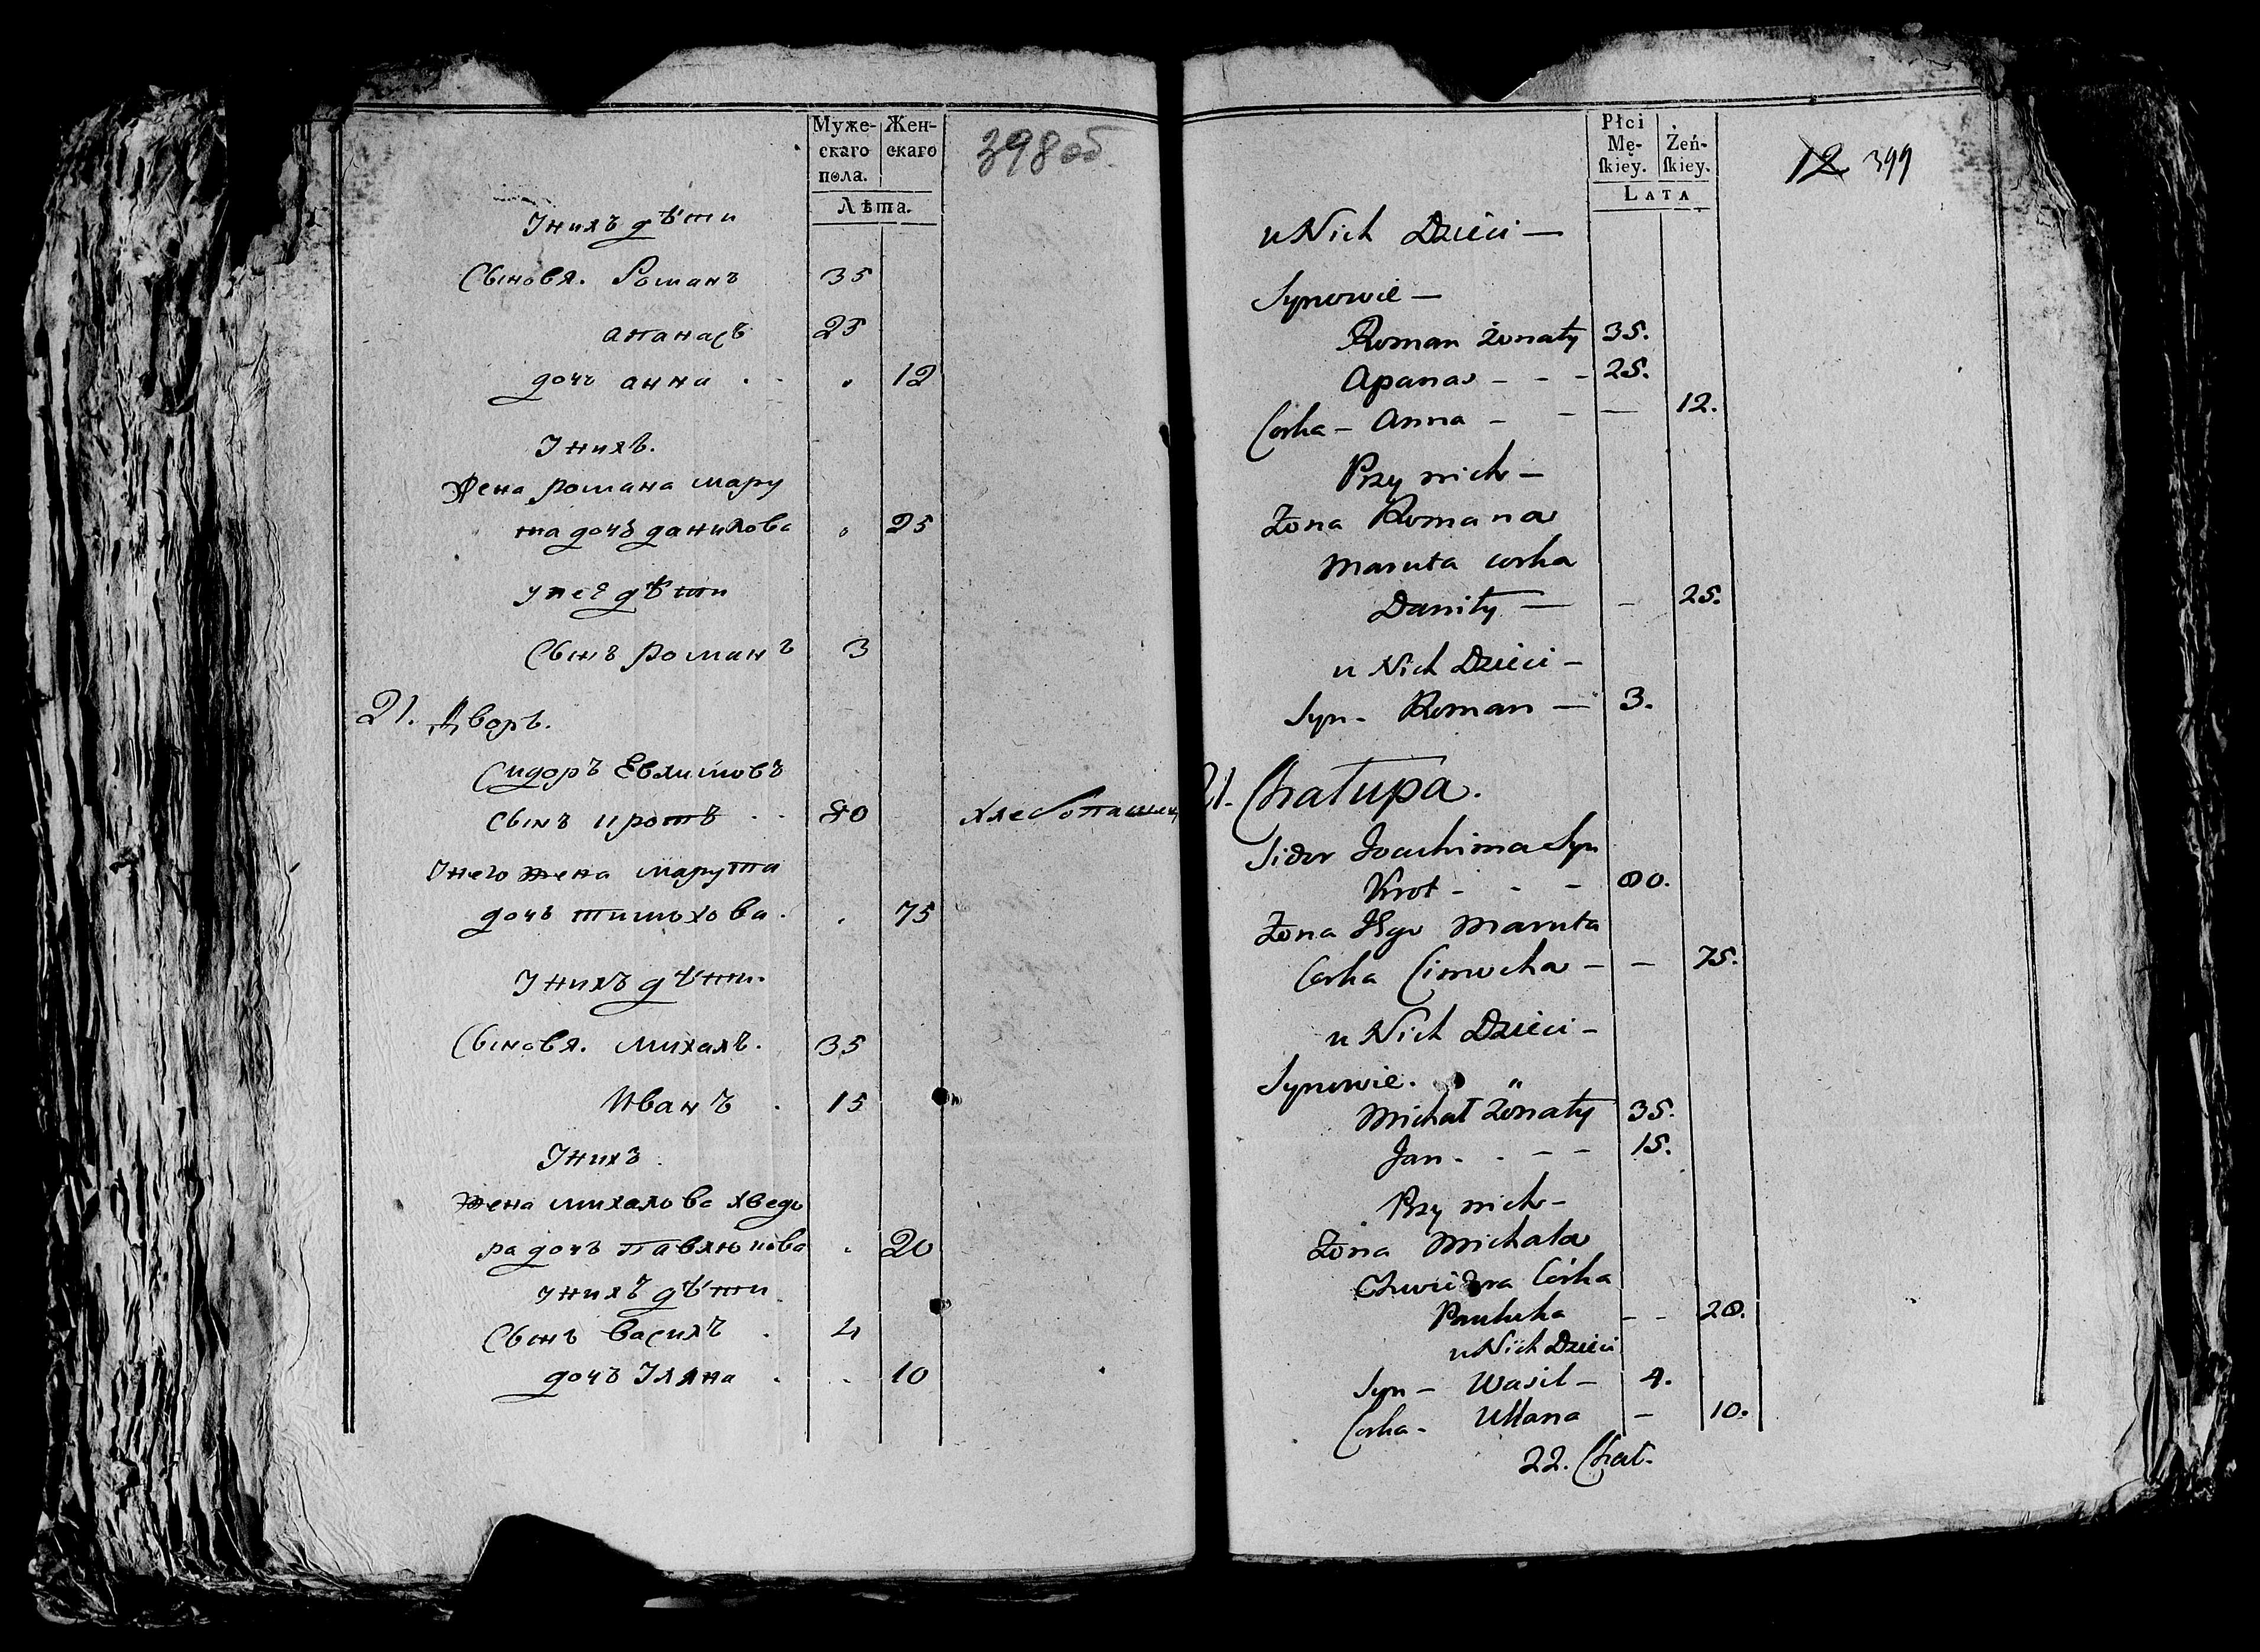 Муже-
скаго
пола.
Жен-
скаго
Лѣта.
398 об.
Унихъ дѣти
Сыновя. Романъ 35
апанасъ 25
дочь анна . . „ 12
Унихъ.
Жена романа мару
та дочь данилова „ 25
унеѣ дѣти
Сынъ романъ 3
21. Дворъ.
Сидоръ Евхимовъ
Сынъ кротъ . . 80 хлебопашец
Унего жена марута
дочь тимохова . . 75
Унихъ дѣти.
Сыновя. михалъ. 35
Иванъ . 15
Унихъ.
жена михалова хведо
ра дочь павлюкова . 20
унихъ дѣти
Сынъ василъ . 4
дочь Уляна . . 10
Płci
Mę-
skiey.
Żeń-
skiey.
LATA
12 399
u Nich Dzieci —
Synowie —
Roman żonaty 35.
Apanas - - - 25.
Corka - Anna - - — 12.
Przy nich -
Żona Romana
Maruta corka
Daniły — - 25.
u Nich Dzieci -
Syn - Roman — 3.
21. Chałupa.
Sidor Joachima Syn
Krot - - - 80.
Żona Jego Maruta
Corka Cimocha - - 75.
u Nich Dzieci -
Synowie.
Michał żonaty 35.
Jan - . - - 15.
Przy nich -
Żona Michała
Chwiedora Córka
Pauluka - - 20.
u Nich Dzieci
Syn - Wasil - 4.
Corka - Ullana - 10.
22. Chał-